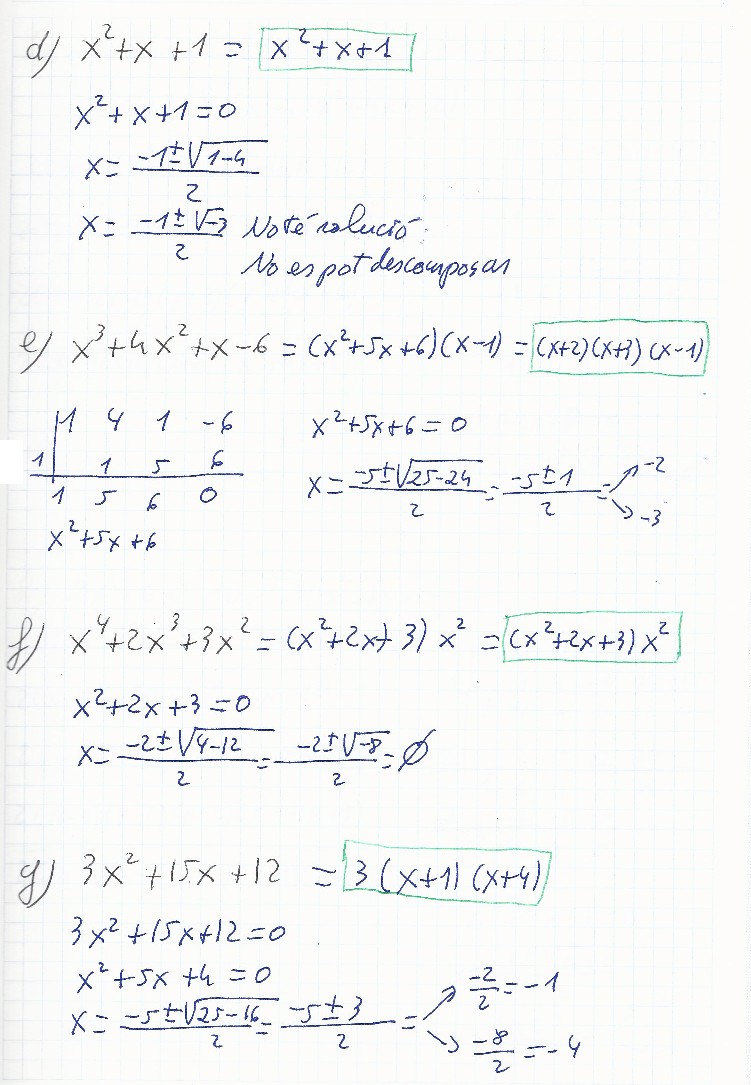 d) x²+x+1 = x²+x+1
x²+x+1=0
x= (-1±√(1-4))/2
x= (-1±√-3)/2 No té solució.
No es pot descomposar
e) x³+4x²+x-6 = (x²+5x+6)(x-1) = (x+2)(x+3)(x-1)
1 4 1 -6
1 1 5 6
1 5 6 0
x²+5x+6
x²+5x+6=0
x= (-5±√(25-24))/2 = (-5±1)/2 = ↗ -2
↘ -3
f) x⁴+2x³+3x² = (x²+2x+3) x² = (x²+2x+3) x²
x²+2x+3=0
x= (-2±√(4-12))/2 = (-2±√-8)/2 = ∅
g) 3x²+15x+12 = 3(x+1)(x+4)
3x²+15x+12=0
x²+5x+4=0
x= (-5±√(25-16))/2 = (-5±3)/2 = ↗ -2/2 = -1
↘ -8/2 = -4